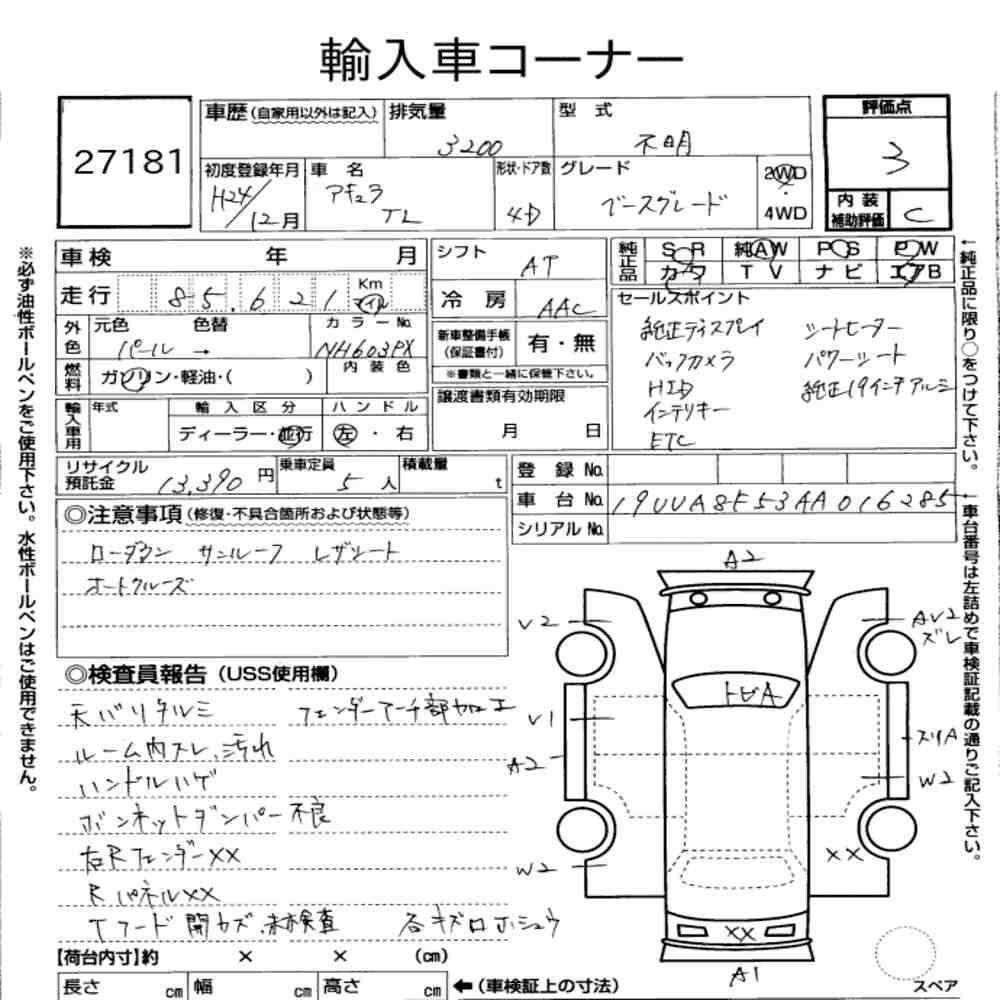 輸入車コーナー
27181
車歴(自家用以外は記入) 排気量 3200 型式 不明
評価点 3
初度登録年月 H24/12月 車名 アキュラ TL 形状・ドア数 4D グレード ベースグレード 2WD 4WD
内装補助評価 C
車検 年 月
シフト AT
純正品 SR 純AW PS PW
カワ TV ナビ エアB
走行 85,621 Km マイル
冷房 AAC
外色 元色 パール 色替 → カラーNo. NH603PX
新車整備手帳(保証書付) 有・無
※書類と一緒に保管下さい。
燃料 ガソリン・軽油・( ) 内装色
譲渡書類有効期限 月 日
輸入車用 年式 輸入区分 ディーラー・並行 ハンドル 左・右
セールスポイント
純正ディスプレイ シートヒーター
バックカメラ パワーシート
HID 純正19インチアルミ
インテリキー
ETC
リサイクル預託金 13,390円 乗車定員 5人 積載量 t
登録No.
車台No. 19UUA8F53AA016285
シリアルNo.
◎注意事項(修復・不具合箇所および状態等)
ローダウン サンルーフ レザシート
オートクルーズ
◎検査員報告(USS使用欄)
天バリタルミ フェンダーアーチ部加工
ルーム内スレ、汚れ
ハンドルハゲ
ボンネットダンパー不良
右Rフェンダーxx
Rパネルxx
Tフード開カズ、未検査 各キズロホシュウ
【荷台内寸】約 × × (cm)
長さ cm 幅 cm 高さ cm ←(車検証上の寸法)
A2
V2
AV2
ズレ
トビA
V1
A2
スリA
W2
W2
xx
xx
A1
スペア
※必ず油性ボールペンをご使用下さい。水性ボールペンはご使用できません。
←純正品に限り○をつけて下さい。
←車台番号は左詰めで車検証記載の通りご記入下さい。